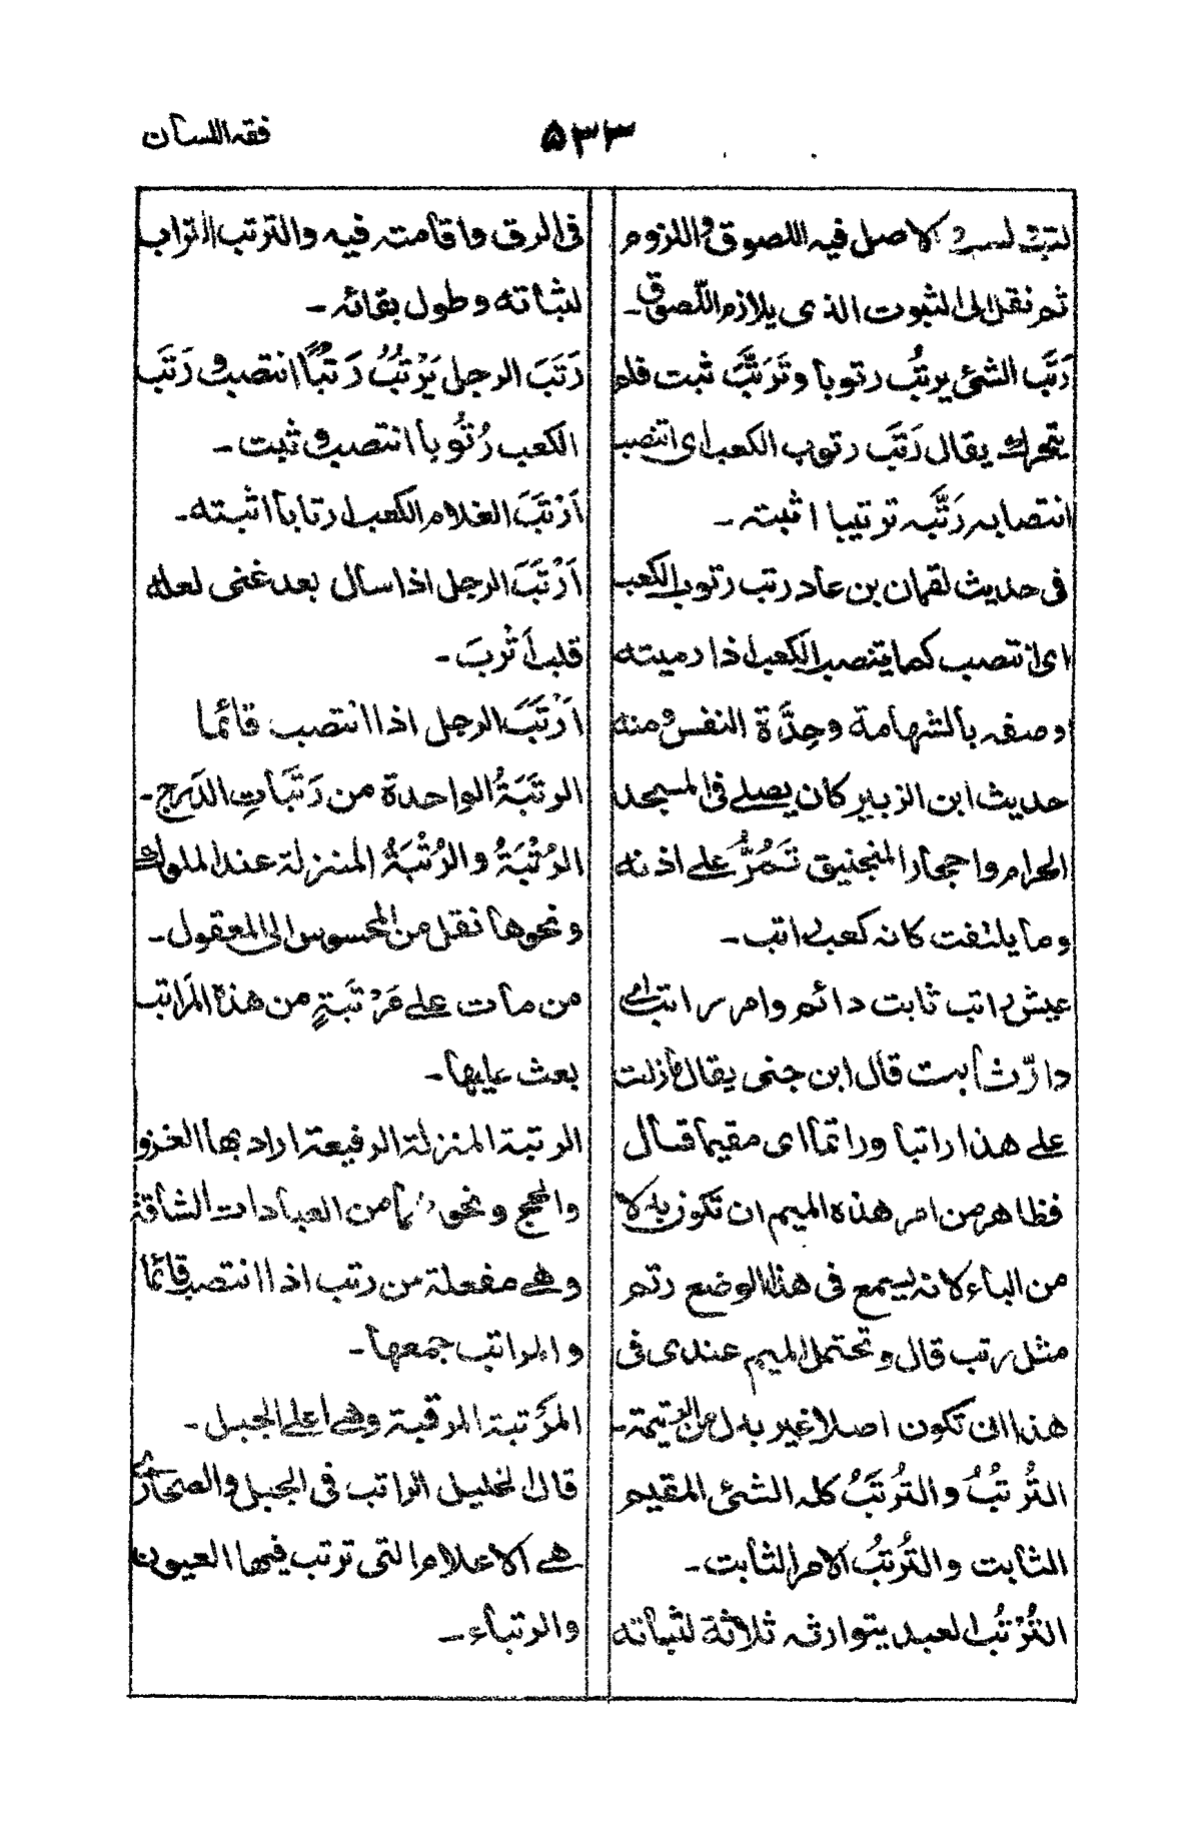 فقه اللسان
۵۳۳
الاصل فيه اللصوق واللزوم
ثم نقل الى الثبوت الذى يلازم اللصوق۔
رَتَّب الشئ يرتُب رتوبا وتَرَتَّبَ ثبت فلم
يتحرك يقال رَتَب رتوب الكعب اى انتصب
انتصابه رَتَّبه ترتيبا اثبته۔
فى حديث لقمان بن عاد رتب رتوب الكعب
اى انتصب كما ينتصب الكعب اذا رميته
وصفه بالشهامة وحِدَّة النفس ومنه
حديث ابن الزبير كان يصلے فى المسجد
الحرام واحجار المنجنيق تَمُرُّ علے اذنه
وما يلتفت كانه كعب راتب۔
عيش راتب ثابت دائم وامر راتب اے
دارّ ثابت قال ابن جنى يقال مازلت
علے هذا راتبا وراتما اى مقيما قال
فظاهر من امر هذه الميم ان تكون بدلا
من الباء لانه يسمع فى هذا الوضع رتم
مثل رتب قال وتحتمل الميم عندى فى
هذا ان تكون اصلا غير بدل من الرتيمة۔
التُرتُبُ والتُرتَبُ كله الشئ المقيم
الثابت والتُرتُبُ الامر الثابت۔
التُرْتُب العبد يتوارثه ثلاثة لثباته
فى الرق واقامته فيه والترتب التراب
لثباته وطول بقائه۔
رَتَبَ الرجل يَرْتُبُ رَتْبًا انتصب و رَتَب
الكعب رُتُوبا انتصب و ثبت۔
اَرْتَبَ الغلام الكعب ارتابا اثبته۔
اَرْتَبَ الرجل اذا سال بعد غنى لعله
قلب اَثْربَ۔
اَرْتَبَ الرجل اذا انتصب قائما
الرتَبَةُ الواحدة من رَتَباتِ الدَرج۔
الرُتْبَةُ والرُتْبَةُ المنزلة عند الملوك
ونحوها نقل من المحسوس الى المعقول۔
من مات علے مَرْتَبَةٍ من هذه المَراتب
بعث عليها۔
الرتبة المنزلة الرفيعة اراد بها الغزو
والحج ونحو هما من العبادات الشاقة
وهے مفعلة من رتب اذا انتصب قائما
والمراتب جمعها۔
المَرْتبة المرقبة وهے اعلے الجبل۔
قال الخليل المراتب فى الجبل والصحارُى
هے الاعلام التى ترتب فيها العيون
والرتباء۔